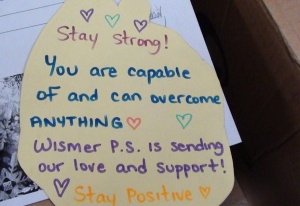 Stay Strong!
You are capable
of and can overcome
ANYTHING
Wismer P.S. is sending
our love and support!
Stay Positive